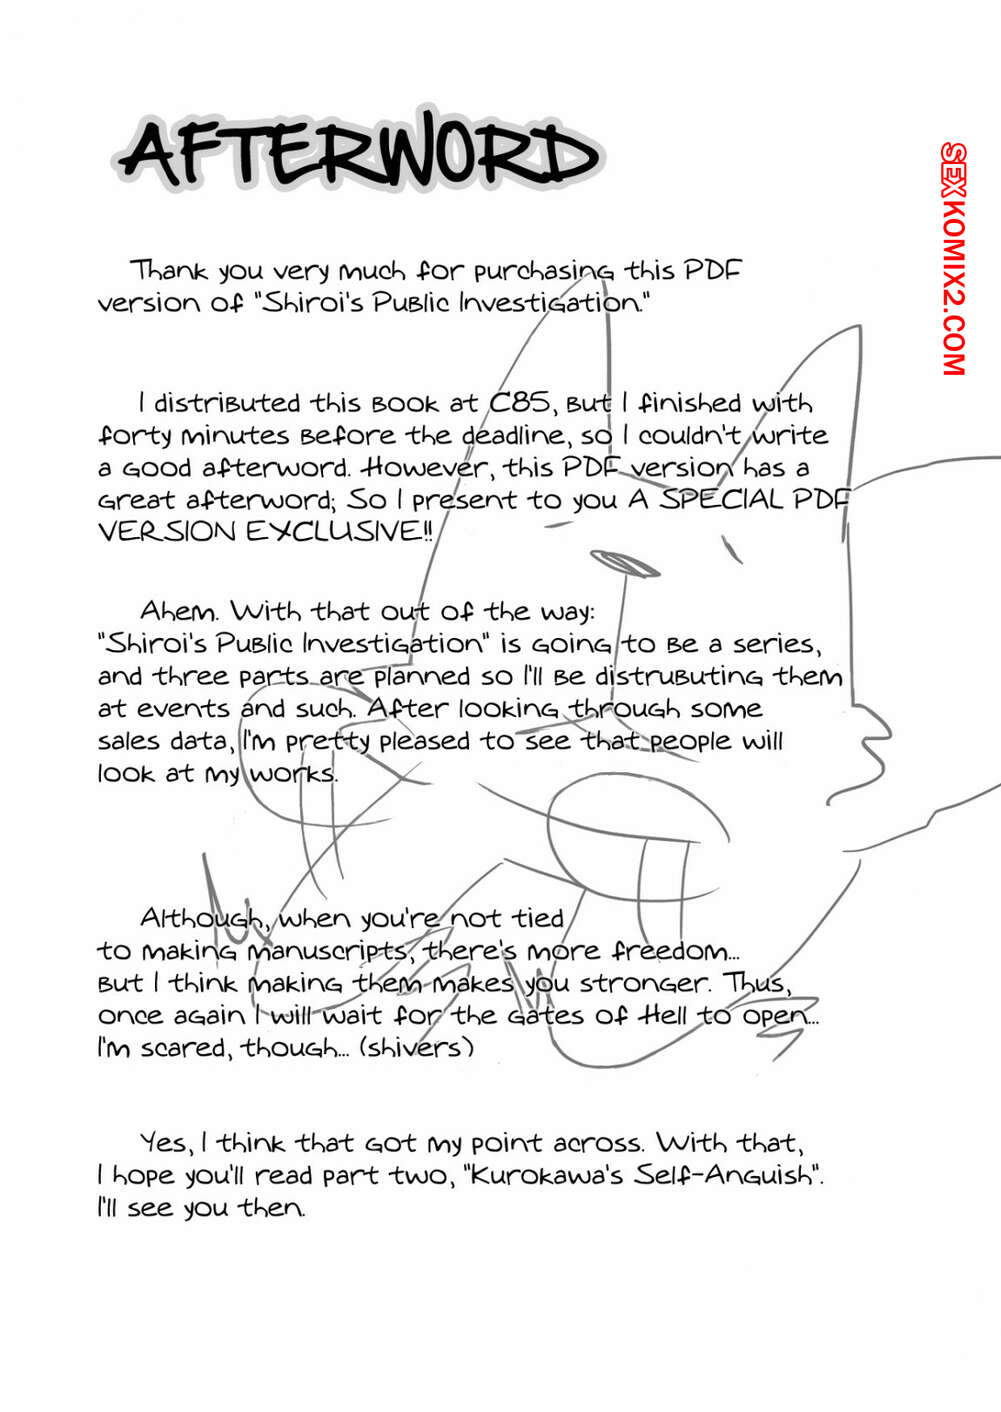 AFTERWORD
SEXKOMIX2.COM
Thank you very much for purchasing this PDF
version of "Shiroi's Public Investigation."
I distributed this book at C85, but I finished with
forty minutes before the deadline, so I couldn't write
a good afterword. However, this PDF version has a
great afterword; So I present to you A SPECIAL PDF
VERSION EXCLUSIVE!!
Ahem. With that out of the way:
"Shiroi's Public Investigation" is going to be a series,
and three parts are planned so I'll be distrubuting them
at events and such. After looking through some
sales data, I'm pretty pleased to see that people will
look at my works.
Although, when you're not tied
to making manuscripts, there's more freedom...
But I think making them makes you stronger. Thus,
once again I will wait for the Gates of Hell to open...
I'm scared, though... (shivers)
Yes, I think that got my point across. With that,
I hope you'll read part two, "Kurokawa's Self-Anguish".
I'll see you then.